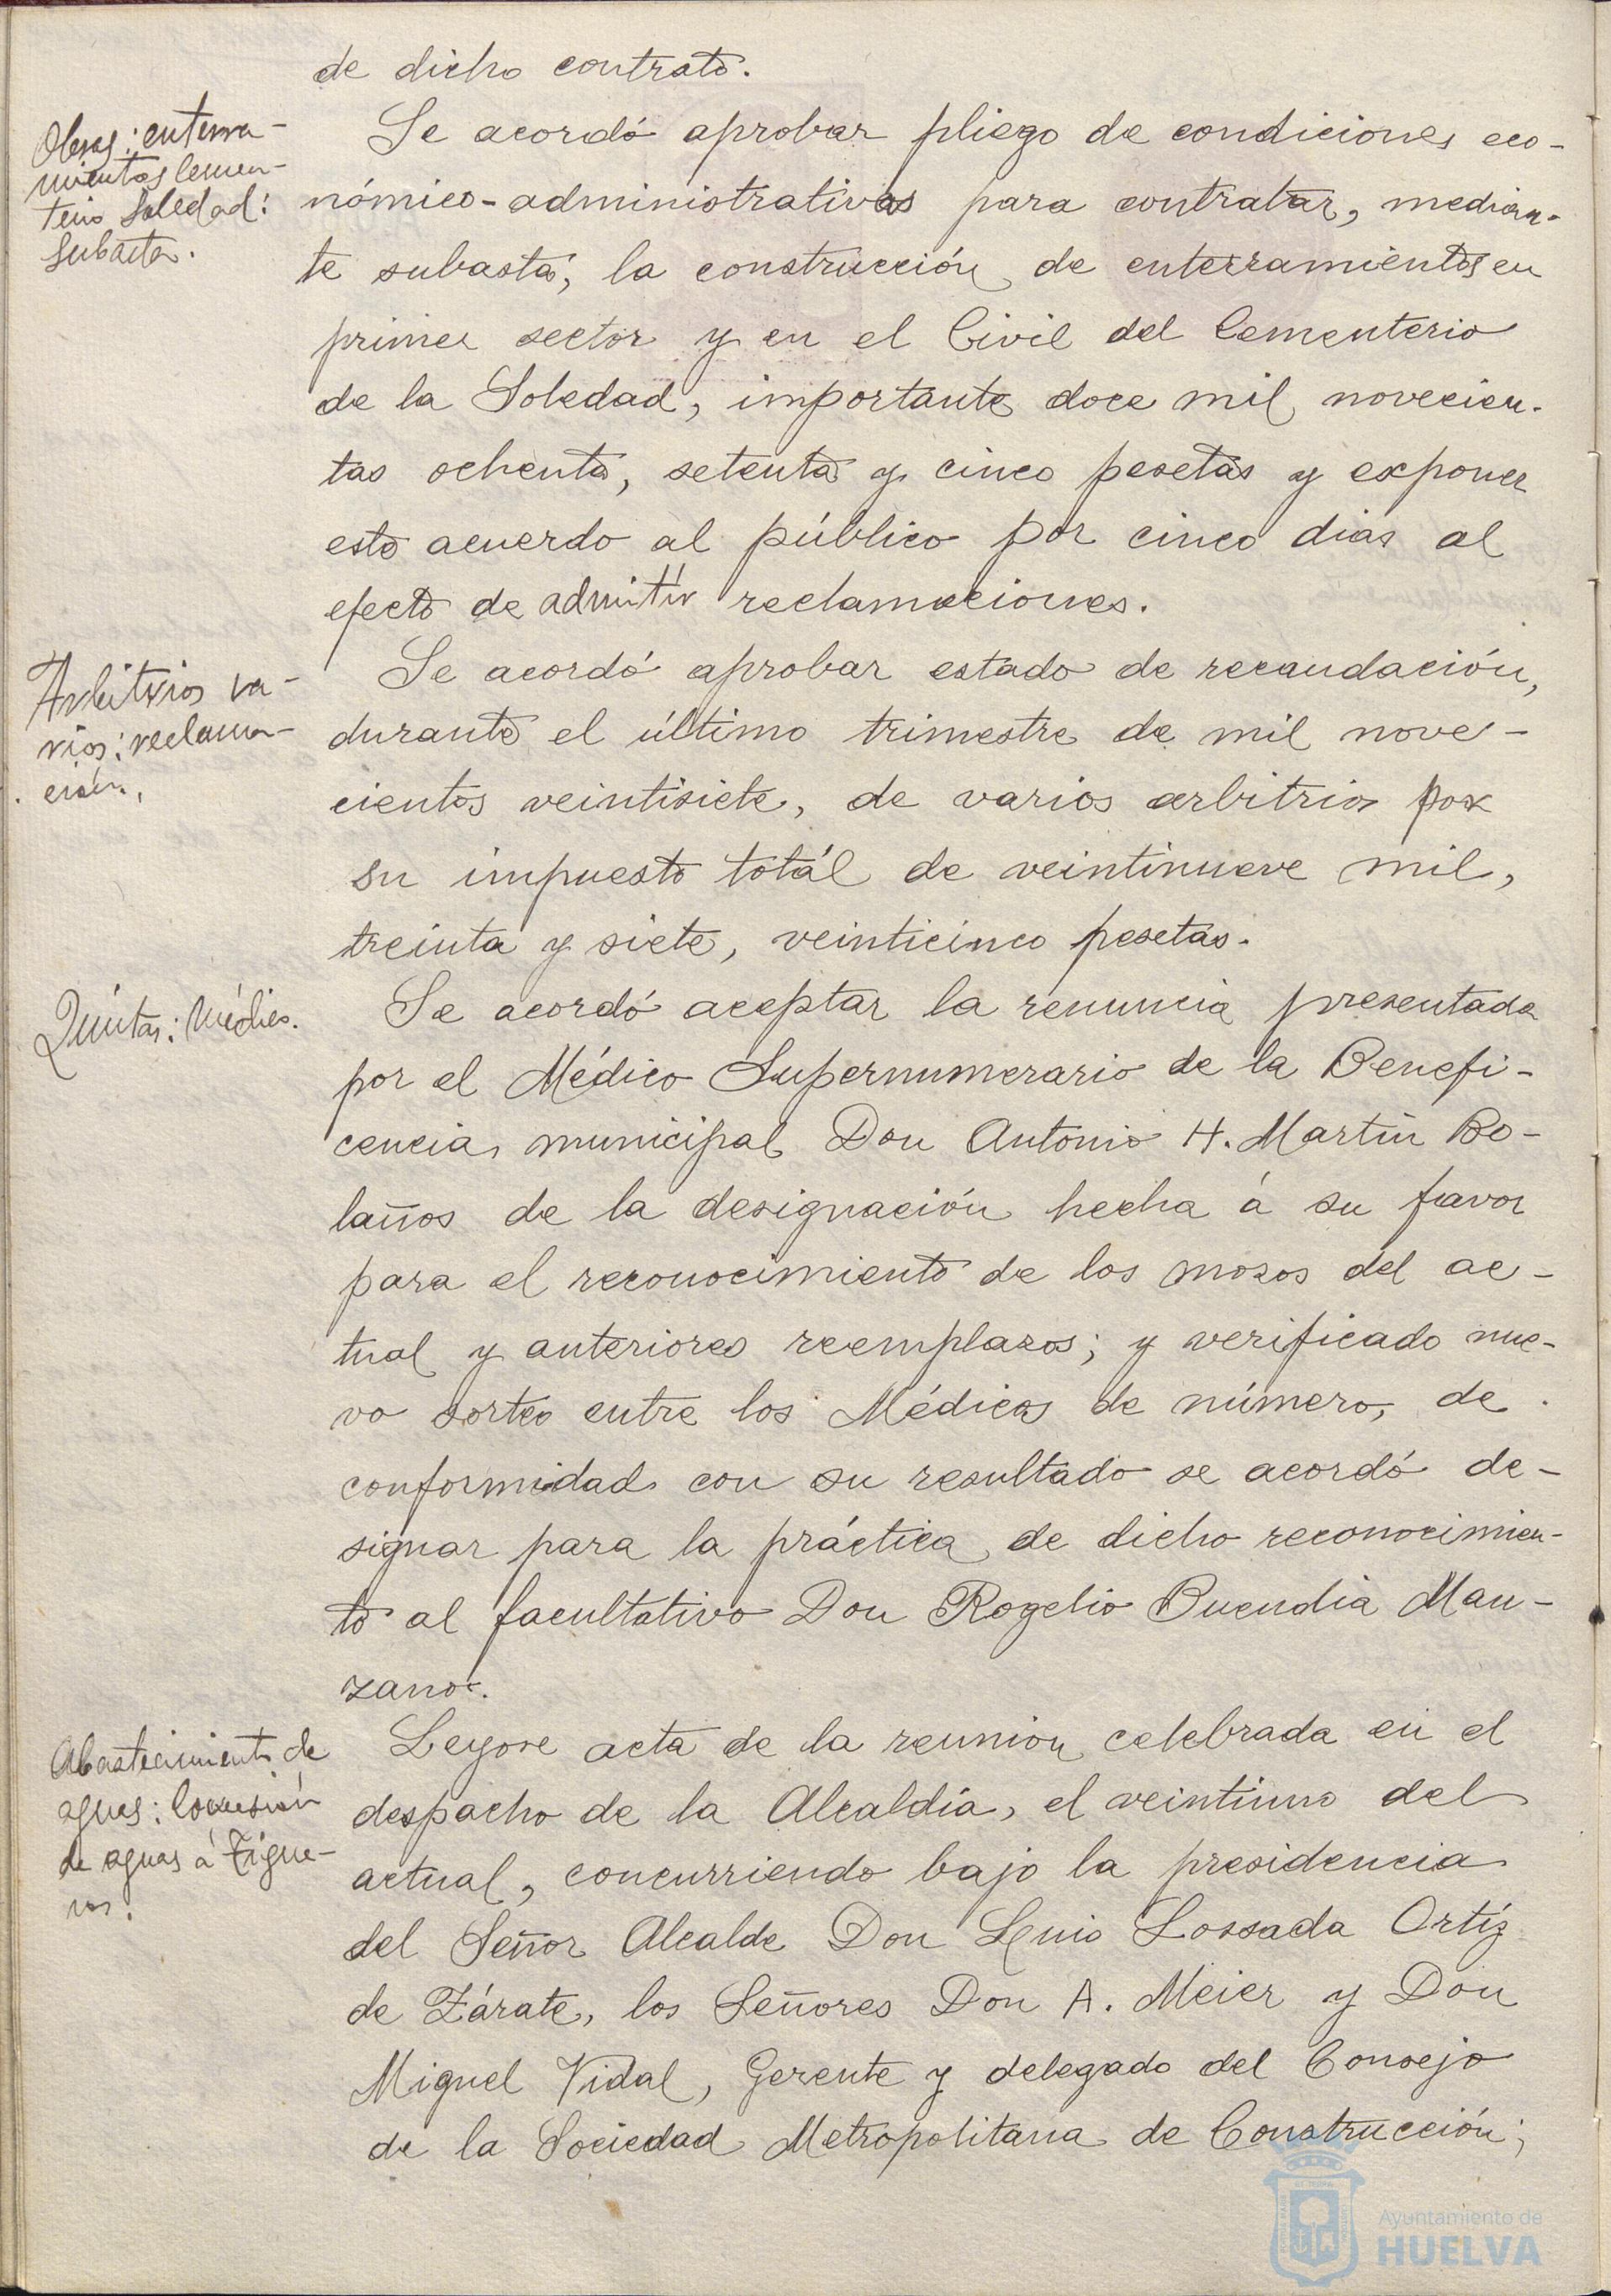 de dicho contrato.
Obras: enterra-
mientos Cemen-
terio Soledad:
Subasta.
Se acordó aprobar pliego de condiciones eco-
nómico-administrativas para contratar, median-
te subasta, la construcción de enterramientos en
primer sector y en el Civil del Cementerio
de la Soledad, importante doce mil novecien-
tas ochenta, setenta y cinco pesetas y exponer
esto acuerdo al público por cinco dias al
efecto de admitir reclamaciones.
Arbitrios va-
rios: reclama-
ción.
Se acordó aprobar estado de recaudación,
durante el último trimestre de mil nove-
cientos veintisiete, de varios arbitrios por
su impuesto totál de veintinueve mil,
treinta y siete, veinticinco pesetas.
Quintas: Médico.
Se acordó aceptar la renuncia presentada
por el Médico Supernumerario de la Benefi-
cencia municipal Don Antonio H. Martín Bo-
laños de la designación hecha á su favor
para el reconocimiento de los mozos del ac-
tual y anteriores reemplazos; y verificado nue-
vo sorteo entre los Médicos de número, de
conformidad con su resultado se acordó de-
signar para la práctica de dicho reconocimien-
to al facultativo Don Rogelio Buendia Man-
zano.
Abastecimiento de
aguas: Concesión
de aguas á Zigue-
Leyose acta de la reunion celebrada en el
despacho de la Alcaldía, el veintiuno del
actual, concurriendo bajo la presidencia
del Señor Alcalde Don Luis Lossada Ortíz
de Zárate, los Señores Don A. Meier y Don
Miguel Vidal, Gerente y delegado del Consejo
de la Sociedad Metropolitana de Construcción;
Ayuntamiento de
HUELVA